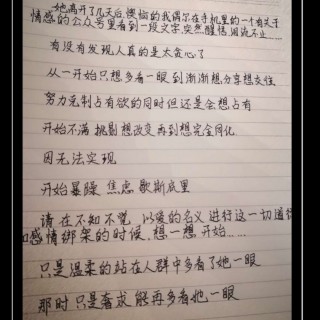 她离开了几天后,懊恼的我偶尔在手机里的一个有关于
情感的公众号里看到一段文字,突然醒悟 泪流不止……
有没有发现人真的是太贪心了
从一开始只想多看一眼 到渐渐想分享想亲近
努力克制占有欲的同时但还是会想占有
开始不满 挑剔想改变 再到想完全同化
因无法实现
开始暴躁 焦虑 歇斯底里
请 在不知不觉 以爱的名义 进行这一切道德
和感情绑架的时候,想一想开始……
只是温柔的站在人群中多看了她一眼
那时 只是奢求 能再多看她 一眼